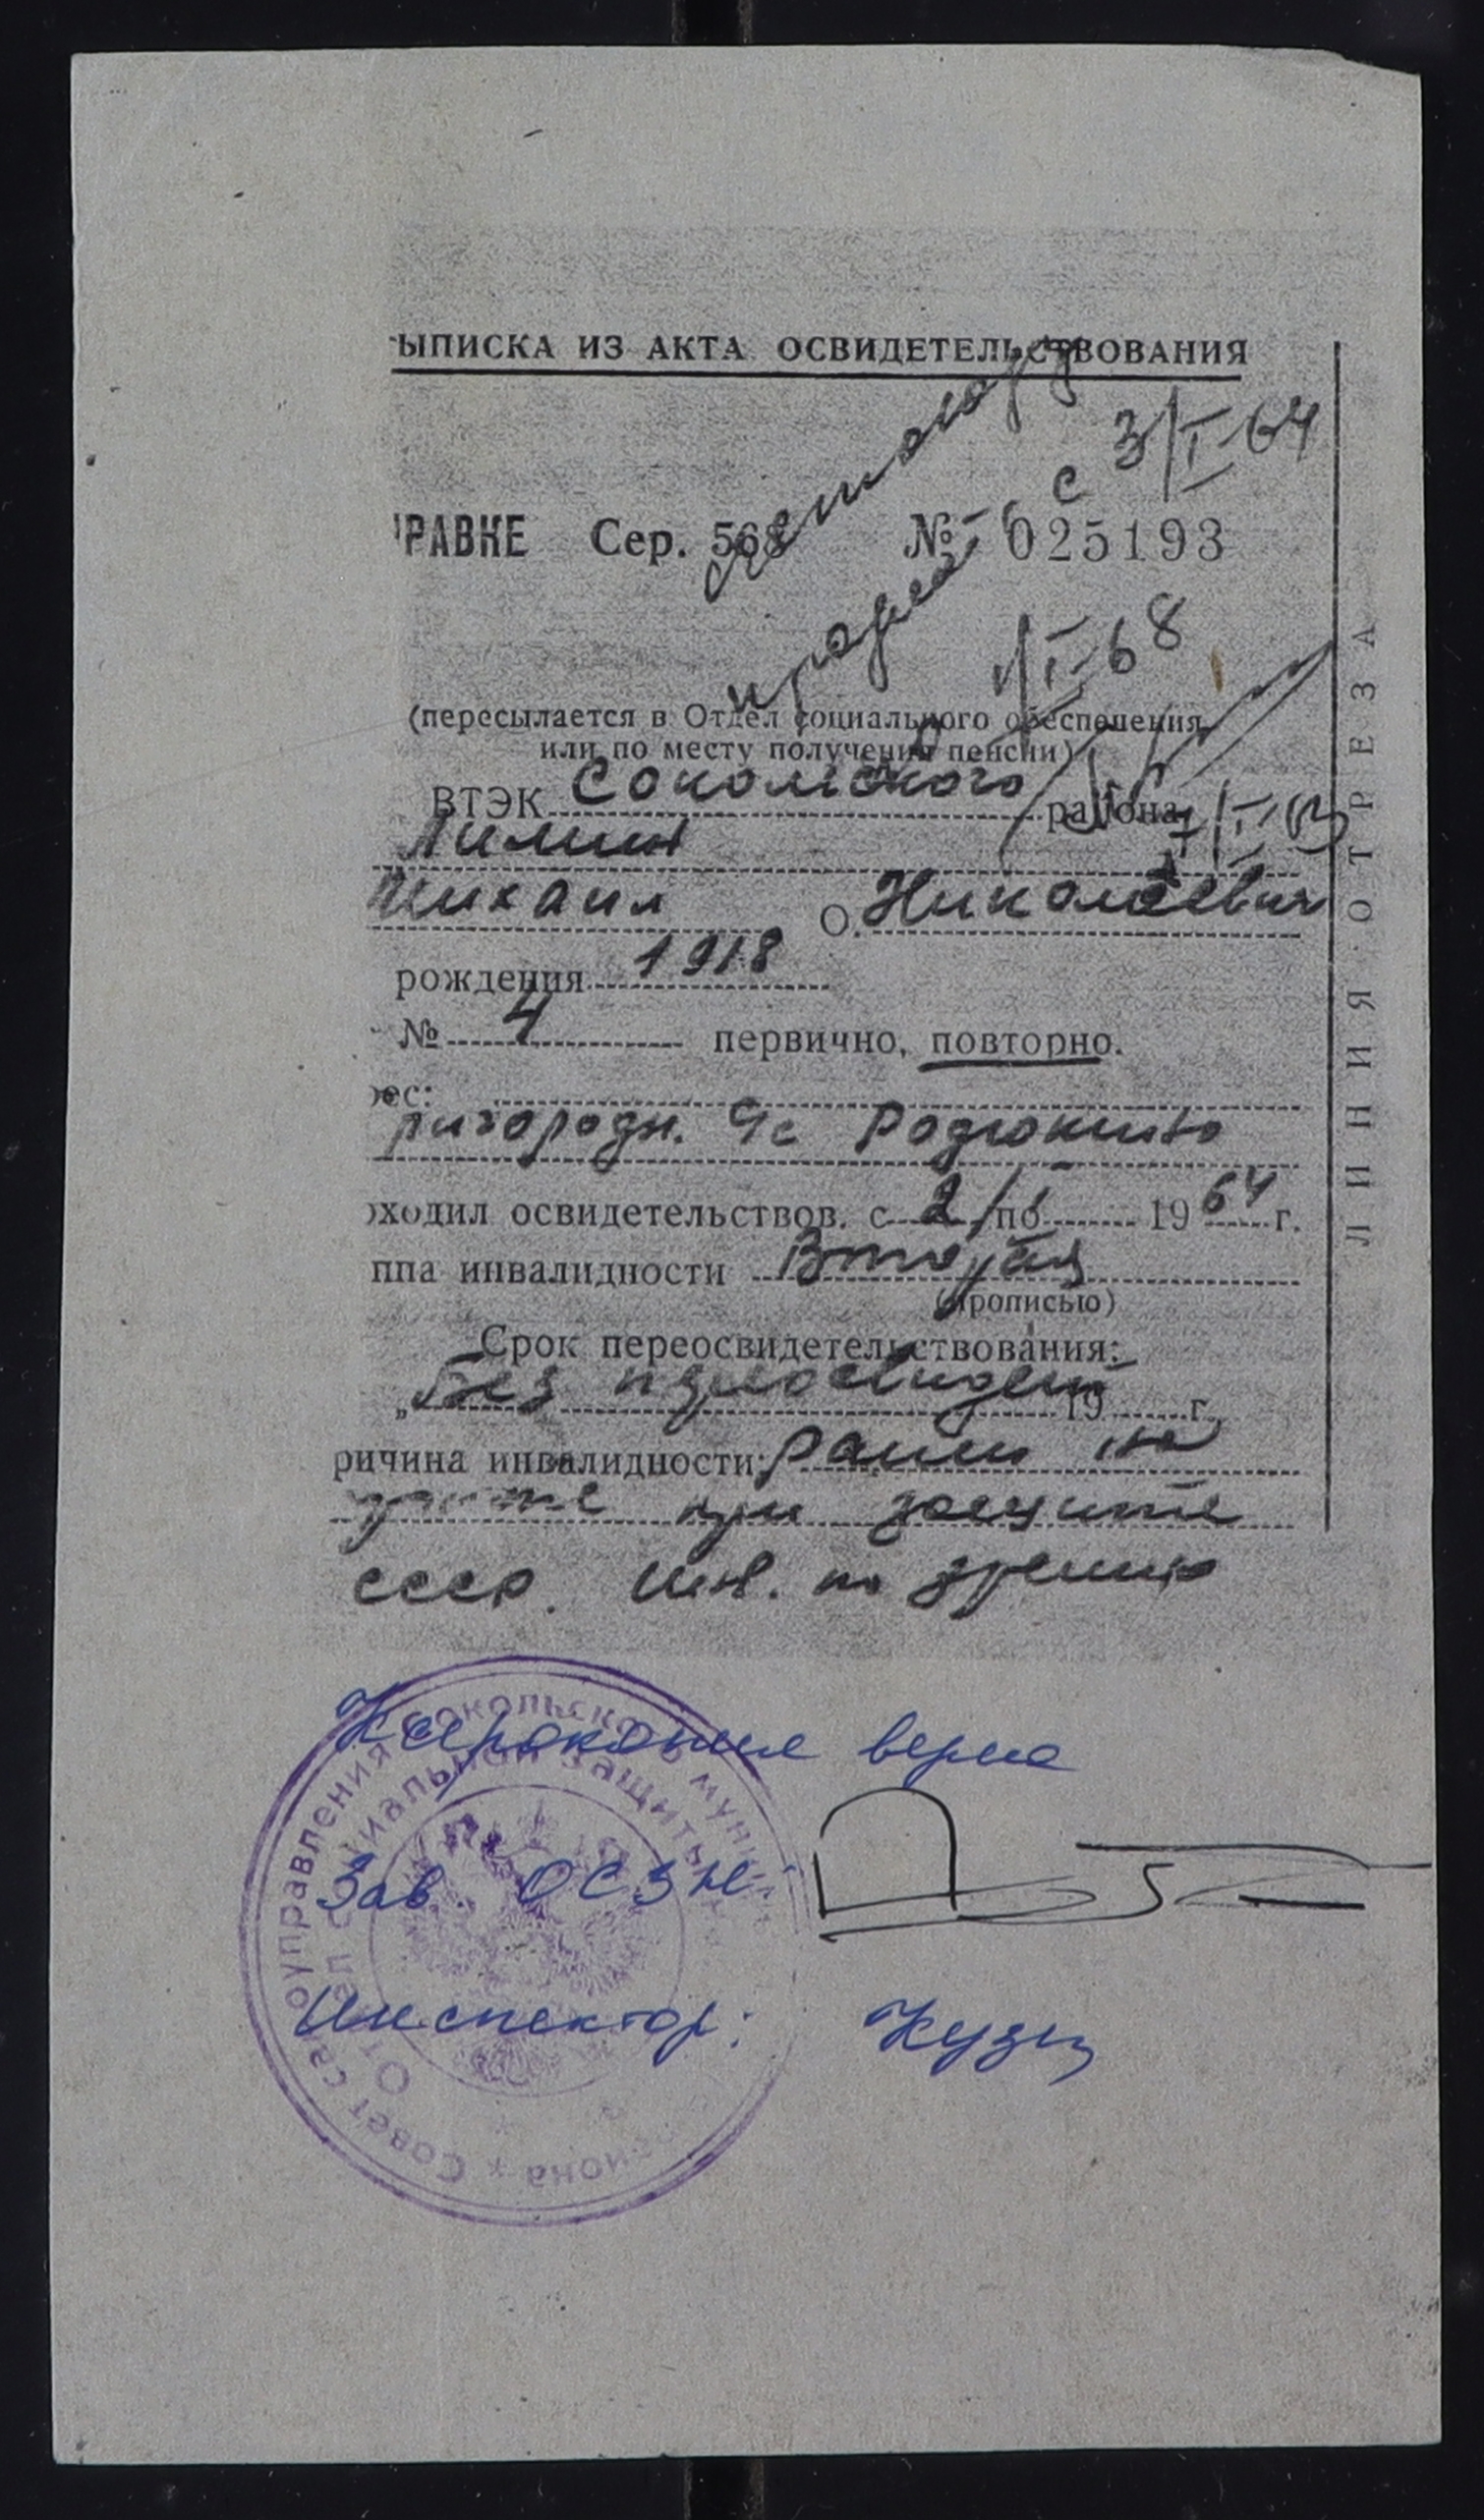 ЫПИСКА ИЗ АКТА ОСВИДЕТЕЛЬСТВОВАНИЯ
с 3/I-64
РАВКЕ Сер. 568 № 025193
1/I-68
(пересылается в Отдел социального обеспечения
или по месту получения пенсии)
ВТЭК Сокольского района
Лимин
Михаил О. Николаевич
рождения 1918
№ 4 первично, повторно.
рес:
ригородн. 9с Родюкино
оходил освидетельствов. с 2/I по 1964 г.
ппа инвалидности Вторая
(прописью)
Срок переосвидетельствования:
„Без переосвидет 19 г.
ричина инвалидности: Ранен на
фронте при защите
СССР. Инв. по зрению
ЛИНИЯ ОТРЕЗА
Ксерокопия верна
Зав. ОСЗН:
Инспектор: Кузн
Совет самоуправления Сокольского муни района
Отдел социальной защиты